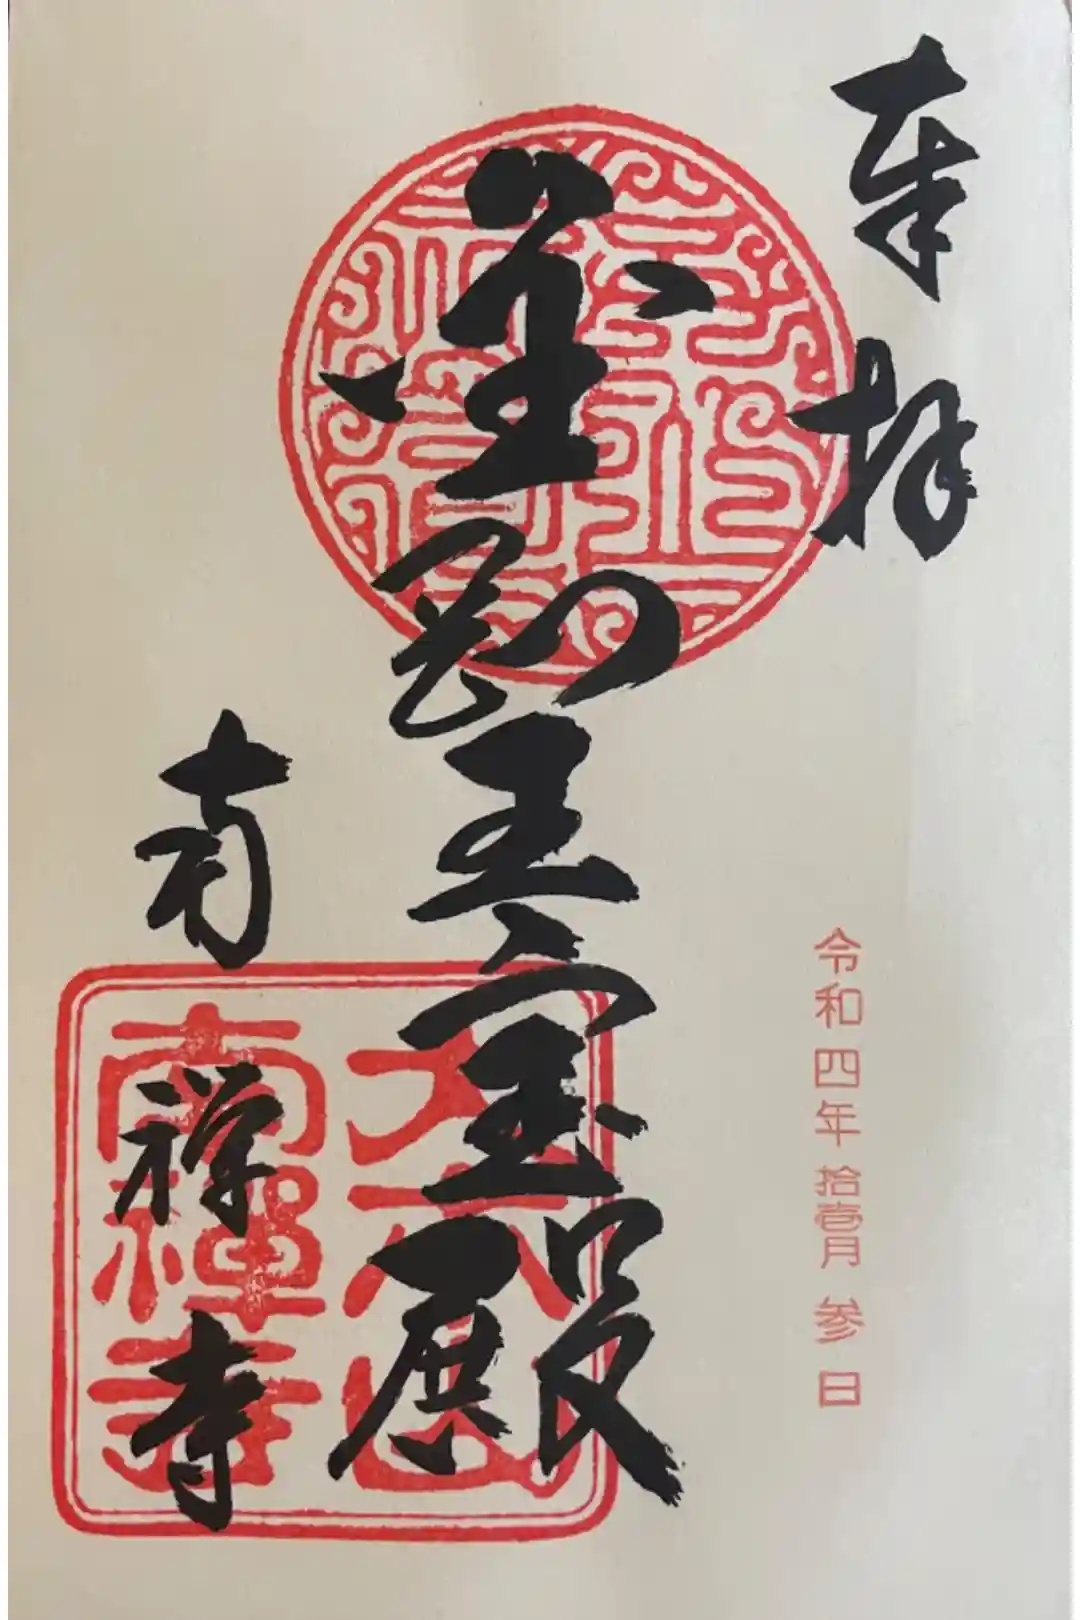 奉拝
令和四年拾壱月参日
金剛王宝殿
南禅寺
南禅寺